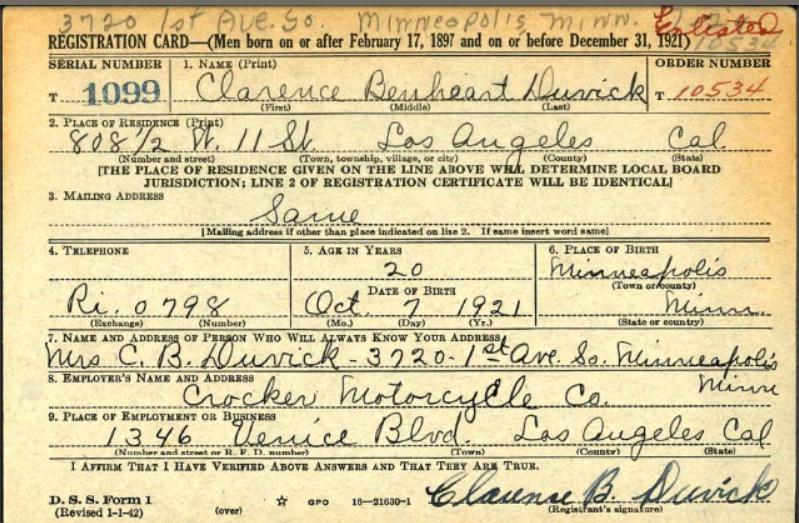 3720 1st Ave. So. Minneapolis, Minn.
Enlisted
REGISTRATION CARD—(Men born on or after February 17, 1897 and on or before December 31, 1921)
10534
SERIAL NUMBER 1. NAME (Print) ORDER NUMBER
T 1099 Clarence Benheart Duvick T 10534
(First) (Middle) (Last)
2. PLACE OF RESIDENCE (Print)
808 1/2 W. 11 St. Los Angeles Cal.
(Number and street) (Town, township, village, or city) (County) (State)
[THE PLACE OF RESIDENCE GIVEN ON THE LINE ABOVE WILL DETERMINE LOCAL BOARD
JURISDICTION; LINE 2 OF REGISTRATION CERTIFICATE WILL BE IDENTICAL]
3. MAILING ADDRESS
Same
[Mailing address if other than place indicated on line 2. If same insert word same]
4. TELEPHONE 5. AGE IN YEARS 6. PLACE OF BIRTH
20 Minneapolis
DATE OF BIRTH (Town or county)
Ri. 0798 Oct. 7 1921 Minn.
(Exchange) (Number) (Mo.) (Day) (Yr.) (State or country)
7. NAME AND ADDRESS OF PERSON WHO WILL ALWAYS KNOW YOUR ADDRESS
Mrs C. B. Duvick - 3720 - 1st Ave. So. Minneapolis
Minn
8. EMPLOYER'S NAME AND ADDRESS
Crocker Motorcycle Co.
9. PLACE OF EMPLOYMENT OR BUSINESS
1346 Venice Blvd. Los Angeles Cal
(Number and street or R. F. D. number) (Town) (County) (State)
I AFFIRM THAT I HAVE VERIFIED ABOVE ANSWERS AND THAT THEY ARE TRUE.
D. S. S. Form 1 GPO 16—21630-1 Clarence B. Duvick
(Revised 1-1-42) (over) (Registrant's signature)